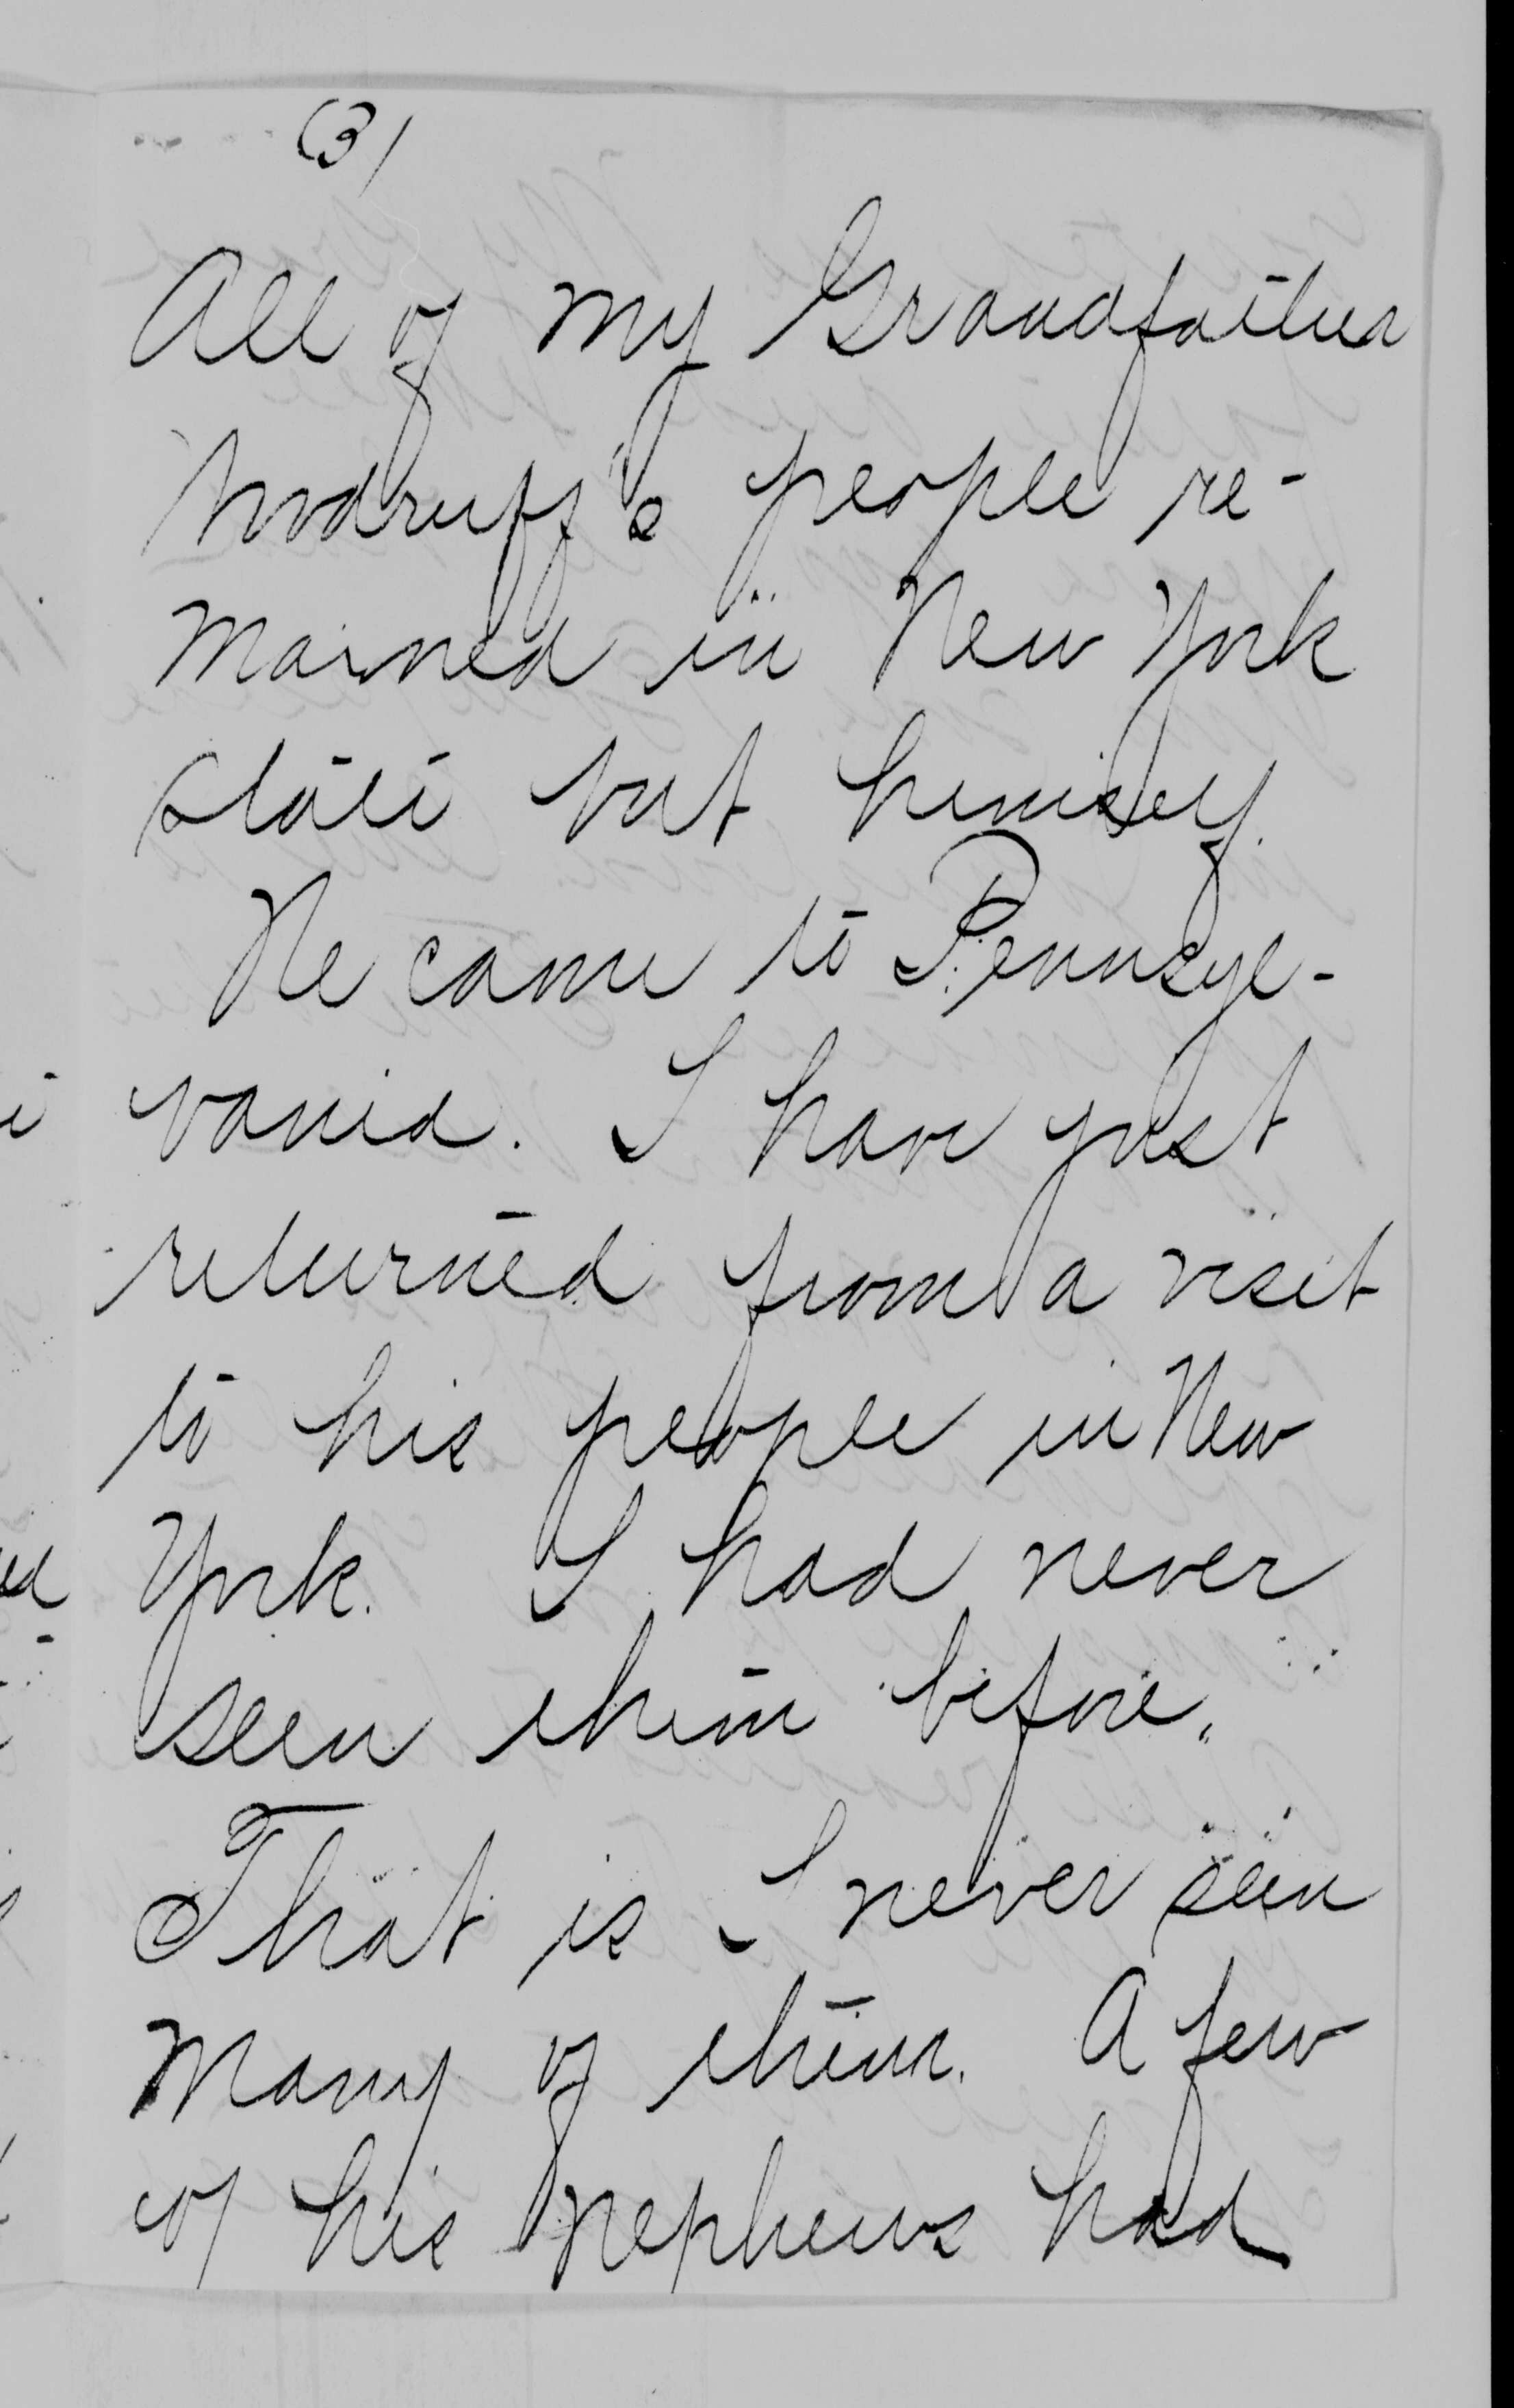 (3)
All of my Grandfather
Woodruff's people re-
mained in New York
state but himself.
He came to Pennsyl-
vania. I have just
returned from a visit
to his people in New
York. I had never
seen them before.
That is I never seen
many of them. A few
of his nephews had